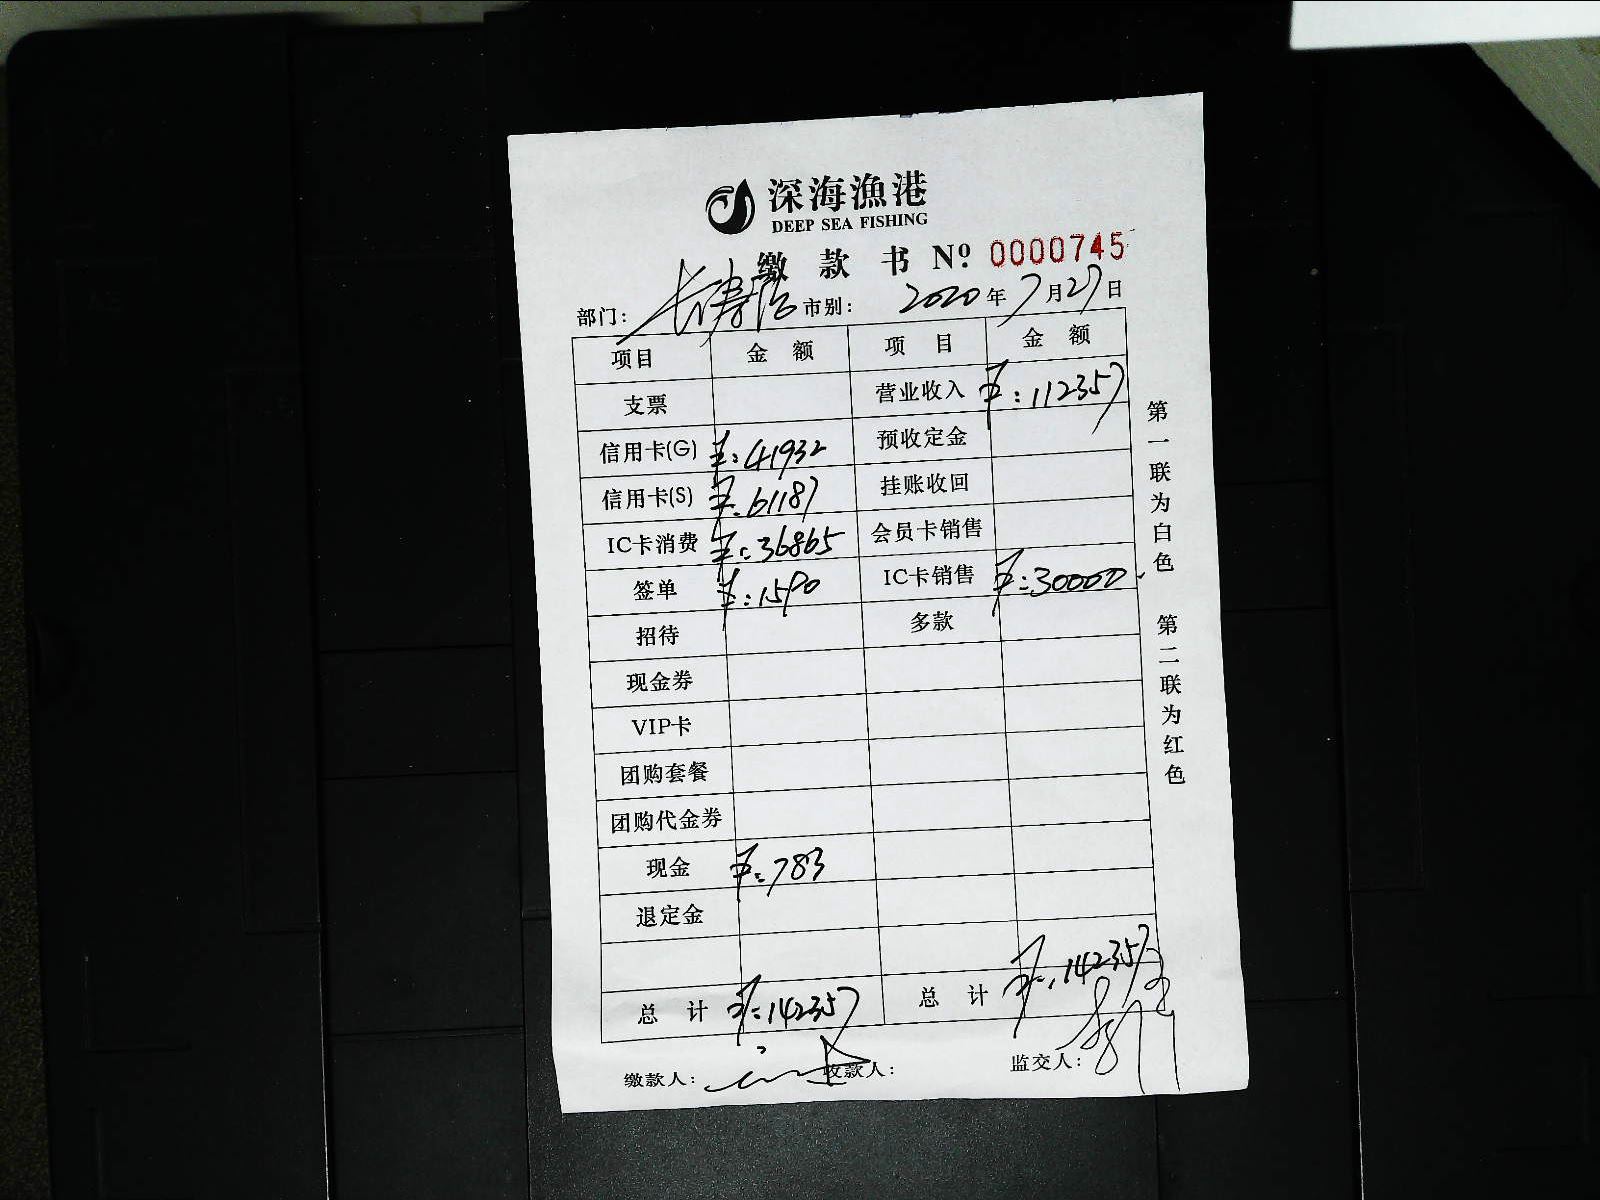 深海漁港
DEEP SEA FISHING
缴款书 Nº 0000745
部门: 长寿路 市别: 2020年7月27日
项目 金额 项目 金额
支票 营业收入 ¥:112357
信用卡(G) ¥:41932 预收定金
信用卡(S) ¥:61187 挂账收回
IC卡消费 ¥:36865 会员卡销售
签单 ¥:1590 IC卡销售 ¥:30000
招待 多款
现金券
VIP卡
团购套餐
团购代金券
现金 ¥:783
退定金
总计 ¥:142357 总计 ¥:142357
缴款人: 收款人: 监交人:
第一联为白色 第二联为红色